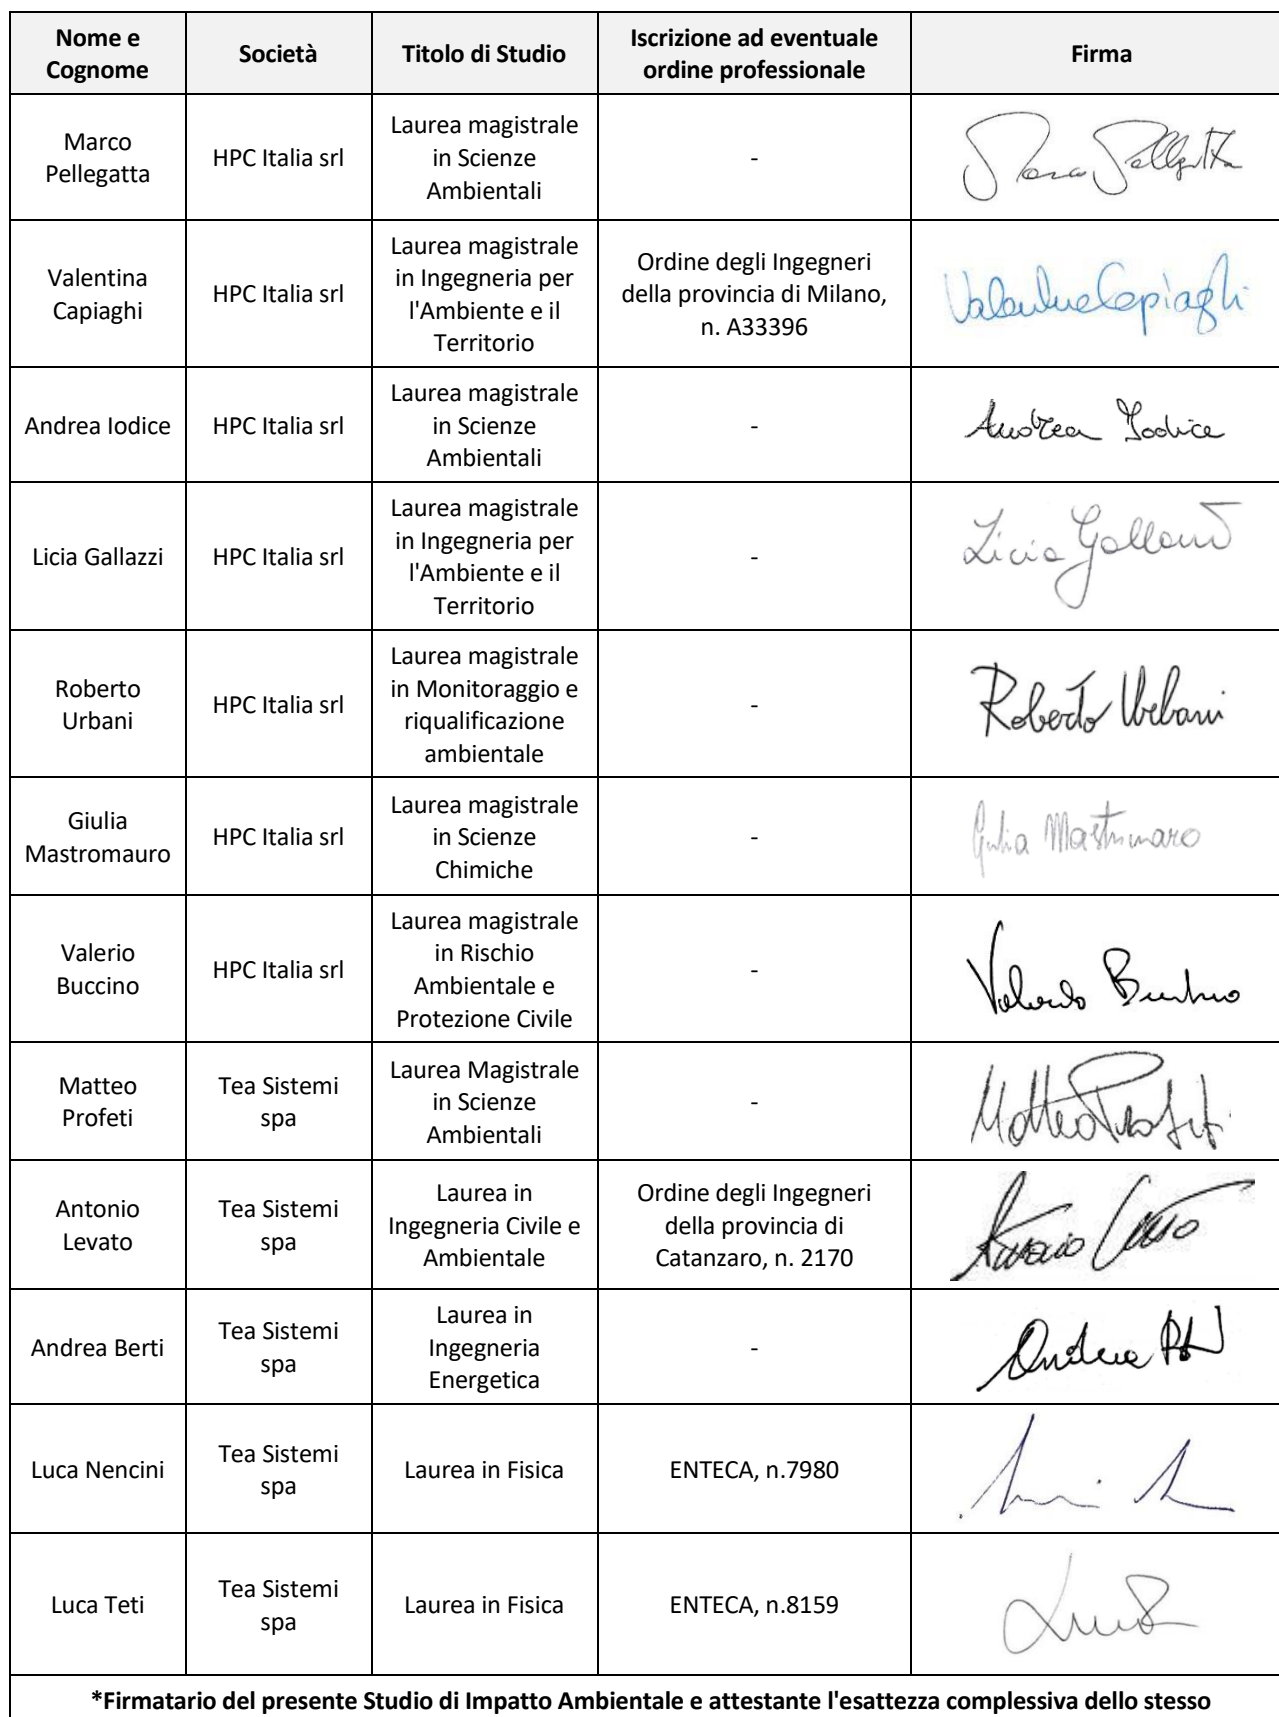 Nome e
Cognome
Società
Titolo di Studio
Iscrizione ad eventuale
ordine professionale
Firma
Marco
Pellegatta
HPC Italia srl
Laurea magistrale
in Scienze
Ambientali
-
Marco Pellegatta
Valentina
Capiaghi
HPC Italia srl
Laurea magistrale
in Ingegneria per
l'Ambiente e il
Territorio
Ordine degli Ingegneri
della provincia di Milano,
n. A33396
Valentina Capiaghi
Andrea Iodice
HPC Italia srl
Laurea magistrale
in Scienze
Ambientali
-
Andrea Iodice
Licia Gallazzi
HPC Italia srl
Laurea magistrale
in Ingegneria per
l'Ambiente e il
Territorio
-
Licia Gallazzi
Roberto
Urbani
HPC Italia srl
Laurea magistrale
in Monitoraggio e
riqualificazione
ambientale
-
Roberto Urbani
Giulia
Mastromauro
HPC Italia srl
Laurea magistrale
in Scienze
Chimiche
-
Giulia Mastromauro
Valerio
Buccino
HPC Italia srl
Laurea magistrale
in Rischio
Ambientale e
Protezione Civile
-
Valerio Buccino
Matteo
Profeti
Tea Sistemi
spa
Laurea Magistrale
in Scienze
Ambientali
-
Matteo Profeti
Antonio
Levato
Tea Sistemi
spa
Laurea in
Ingegneria Civile e
Ambientale
Ordine degli Ingegneri
della provincia di
Catanzaro, n. 2170
Antonio Levato
Andrea Berti
Tea Sistemi
spa
Laurea in
Ingegneria
Energetica
-
Andrea
Luca Nencini
Tea Sistemi
spa
Laurea in Fisica
ENTECA, n.7980
Luca Teti
Tea Sistemi
spa
Laurea in Fisica
ENTECA, n.8159
*Firmatario del presente Studio di Impatto Ambientale e attestante l'esattezza complessiva dello stesso